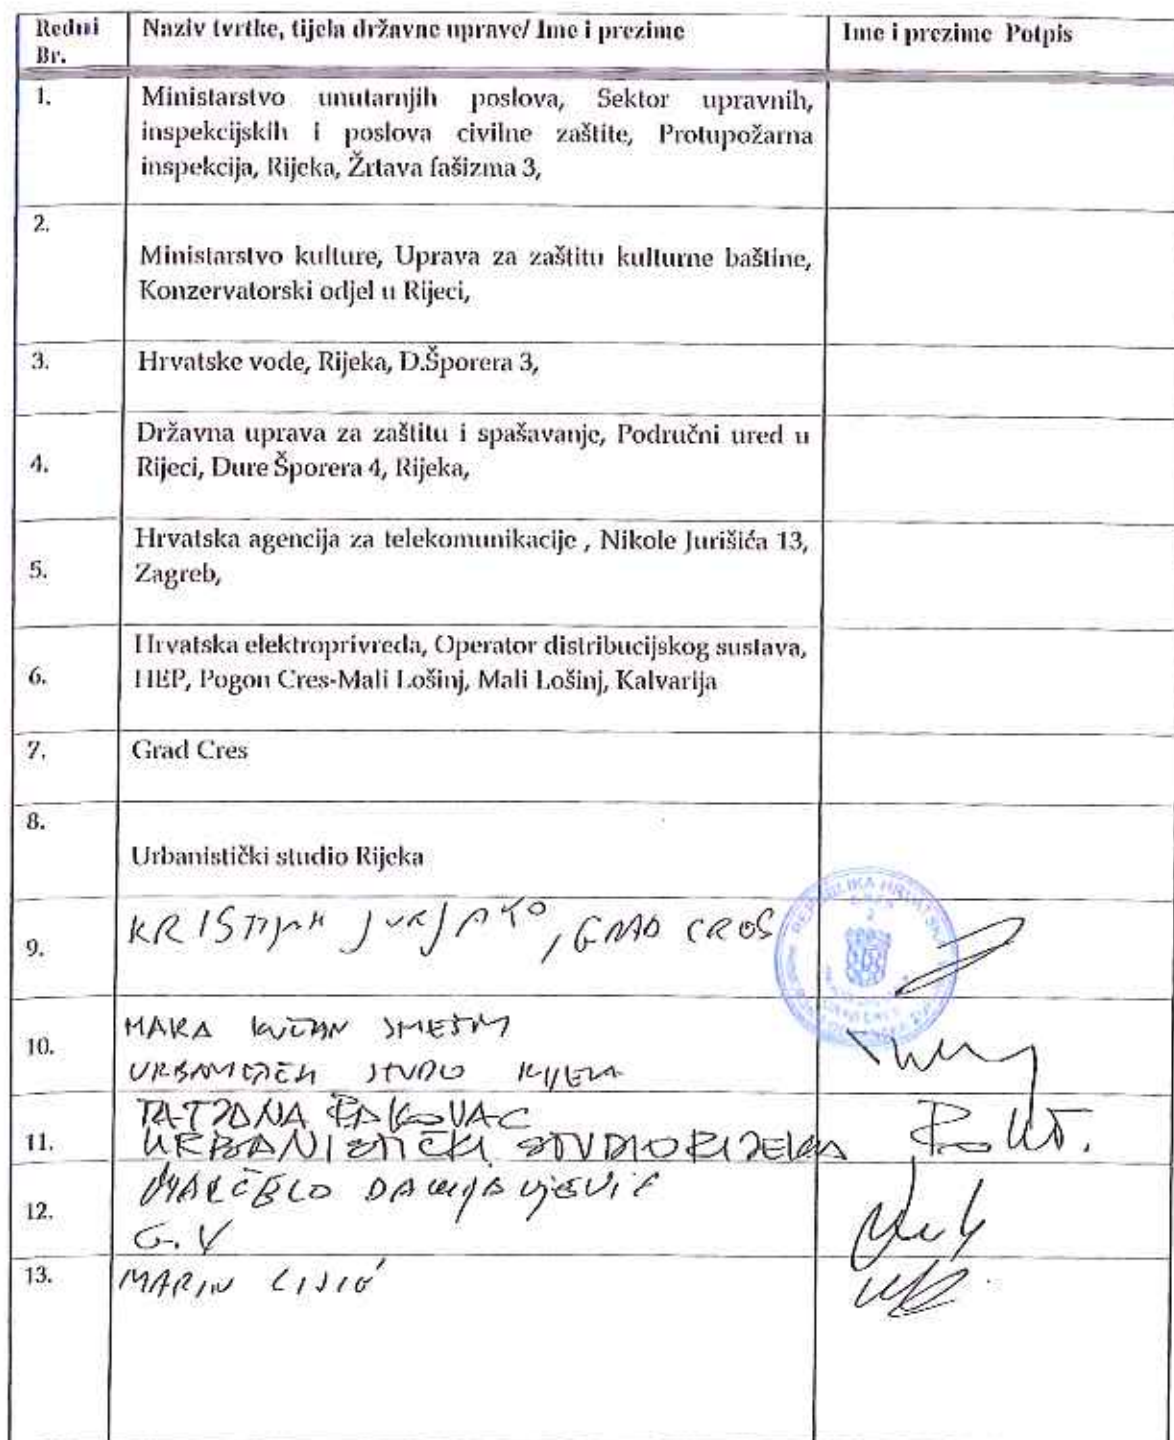 Redni Br.
Naziv tvrtke, tijela državne uprave/ Ime i prezime
Ime i prezime Potpis
1.
Ministarstvo unutarnjih poslova, Sektor upravnih,
inspekcijskih i poslova civilne zaštite, Protupožarna
inspekcija, Rijeka, Žrtava fašizma 3,
2.
Ministarstvo kulture, Uprava za zaštitu kulturne baštine,
Konzervatorski odjel u Rijeci,
3.
Hrvatske vode, Rijeka, D.Šporera 3,
4.
Državna uprava za zaštitu i spašavanje, Područni ured u
Rijeci, Đure Šporera 4, Rijeka,
5.
Hrvatska agencija za telekomunikacije , Nikole Jurišića 13,
Zagreb,
6.
Hrvatska elektroprivreda, Operator distribucijskog sustava,
HEP, Pogon Cres-Mali Lošinj, Mali Lošinj, Kalvarija
7.
Grad Cres
8.
Urbanistički studio Rijeka
9.
KRISTIJAN JURJAKO, GRAD CRES
REPUBLIKA HRVATSKA
10.
MARA
STUDIO RIJEKA
11.
TATJANA RAKOVAC
URBANISTIČKI STUDIO RIJEKA
12.
MARČELO DAMIJANJEVIĆ
G.V
13.
MARIN